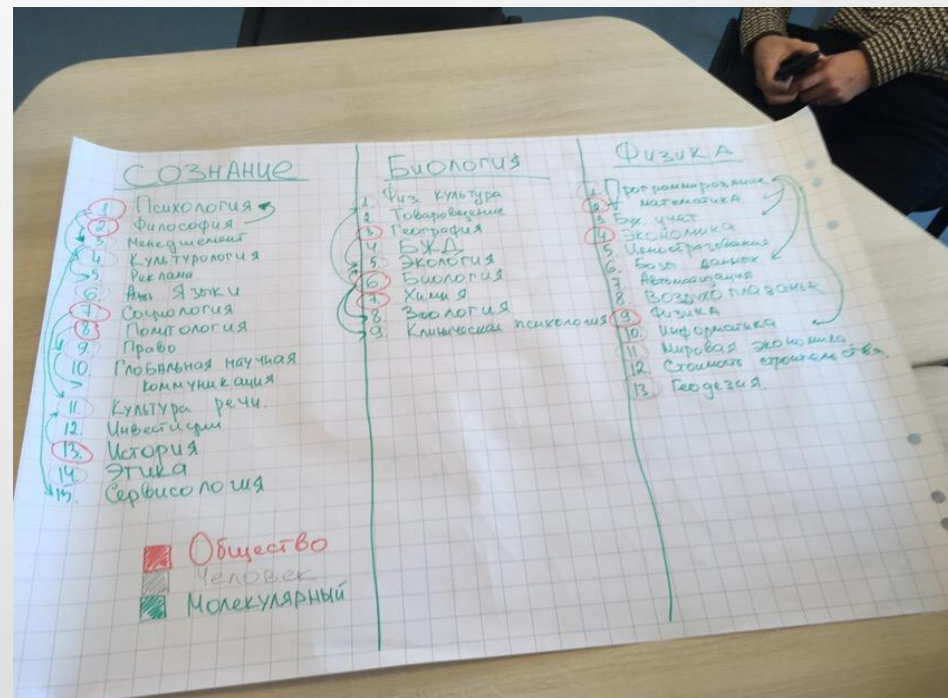 СОЗНАНИЕ
1. Психология
2. Философия
3. Менеджемент
4. Культурология
5. Реклама
6. Языки
7. Социология
8. Политология
9. Право
10. Глобальная научная
коммуникация
11. Культура речи.
12. Инвестиции
13. История
14. Этика
15. Сервисология
Общество
Человек
Молекулярный
Биология
1. Физ. культура
2. Товароведение
3. География
4 БЖД
5. Экология
6 Биология
7. Химия
8 Зоология
9. Клиническая психология
Физика
1. Программирование
2. математика
3 Бух. учет
4. Экономика
5. Ценообразование
6. Базы данных
7. Автоматизация
8 Воздухоплаванье
9. Физика
10. Информатика
11 Мировая экономика
12. Стоимость строительства
13. Геодезия.